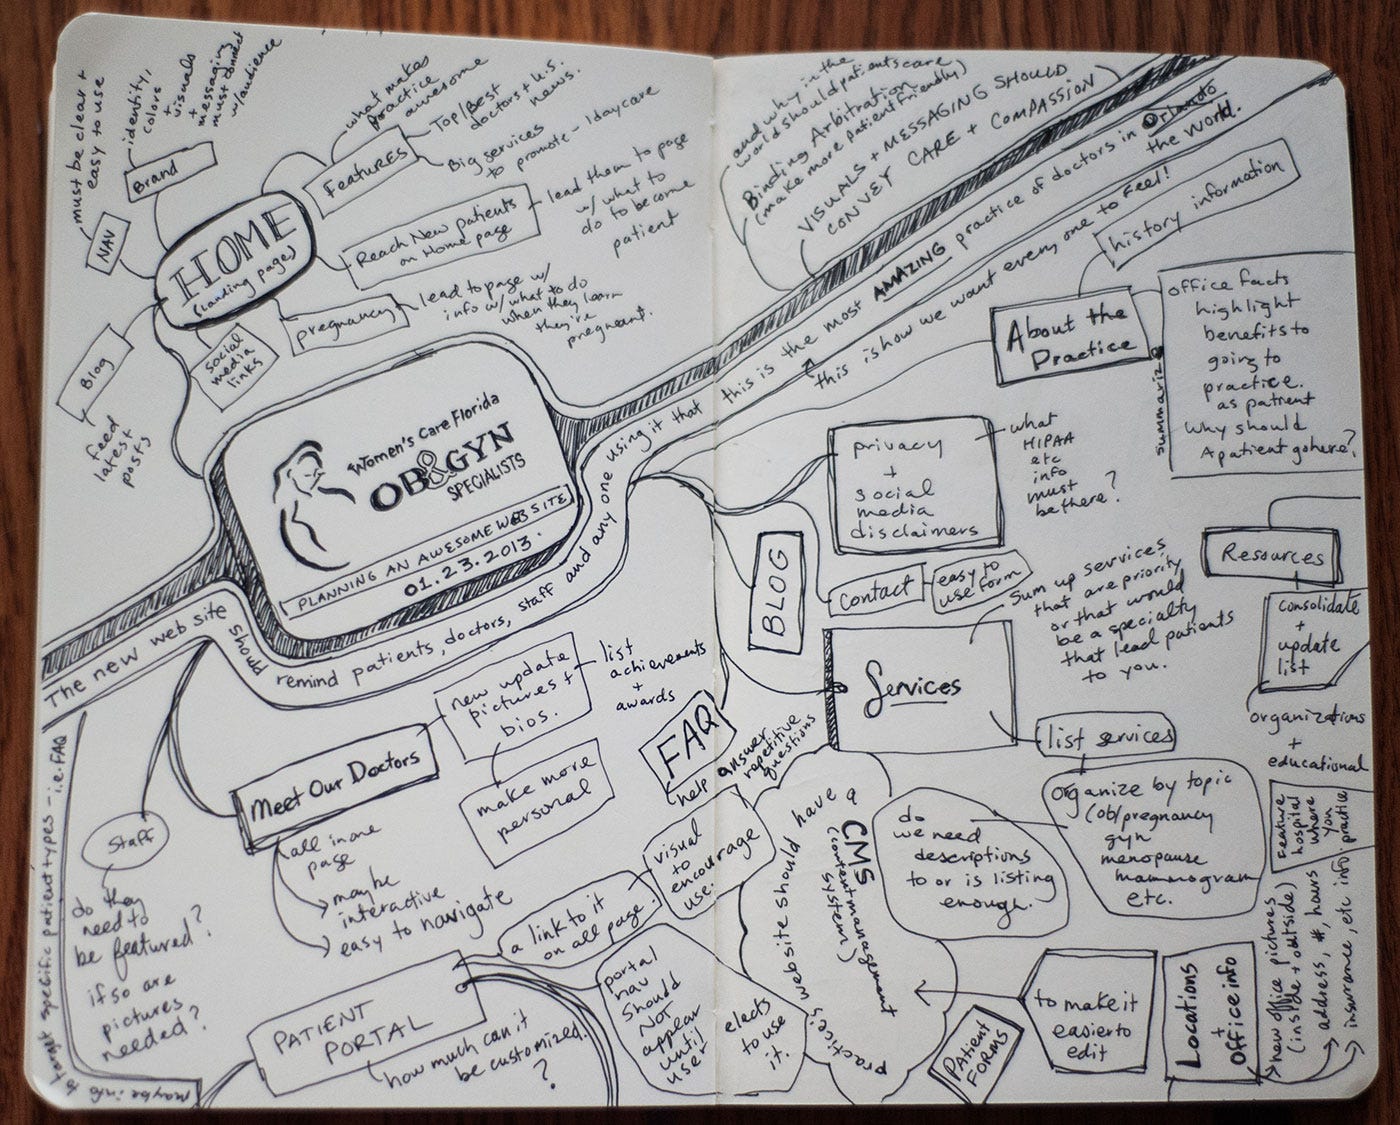 must be clear +
easy to use
identity,
colors
+
visuals
+
messaging
must connect
w/audience
Brand
NAV
HOME
(landing page)
what makes
practice
awesome
Features
Top/Best
doctors + U.S.
news.
Big services
to promote - 1daycare
Reach New patients
on Home page
lead them to page
w/ what to
do to become
patient
pregnancy
lead to page w/
info w/ what to do
when they learn
they're
pregnant.
social
media
links
Blog
feed
latest
posts
Women's Care Florida
OB&GYN
SPECIALISTS
PLANNING AN AWESOME WEBSITE
01.23.2013.
The new web site should remind patients, doctors, staff and any one using it that this is the most AMAZING practice of doctors in Orlando
the world.
this is how we want every one to feel!
and why in the
world should patients care
Binding Arbitration
(make more patient friendly)
VISUALS + MESSAGING SHOULD
CONVEY CARE + COMPASSION
history information
About the
Practice
summarize
office facts
highlight
benefits to
going to
practice.
as patient
Why should
A patient go here?
privacy
+
social
media
disclaimers
what
HIPAA
etc
info
must
be there?
BLOG
contact
easy to
use form
Resources
consolidate
+
update
list
organizations
+
educational
Feature
hospital
where
you
practice
Services
Sum up services
that are priority
or that would
be a specialty
that lead patients
to you.
list services
organize by topic
(ob/pregnancy
gyn
menopause
mammogram
etc.
do
we need
descriptions
to or is listing
enough.
FAQ
help answer
repetitive
questions
Meet Our Doctors
new update
pictures +
bios.
list
achievements
+
awards
make more
personal
all in one
page
maybe
interactive
easy to navigate
Staff
do they
need to
be featured?
if so are
pictures
needed?
maybe info
to target specific patient types - i.e. FAQ
PATIENT
PORTAL
how much can it
be customized.
?
a link to it
on all page.
visual
to
encourage
use.
portal
nav
should
NOT
appear
until
user
elects
to use
it.
practice's website should have a
CMS
(content management
system)
to make it
easier to
edit
PATIENT
FORMS
Locations
+
Office info
new office pictures
(inside + outside)
address, #, hours
insurance, etc info.